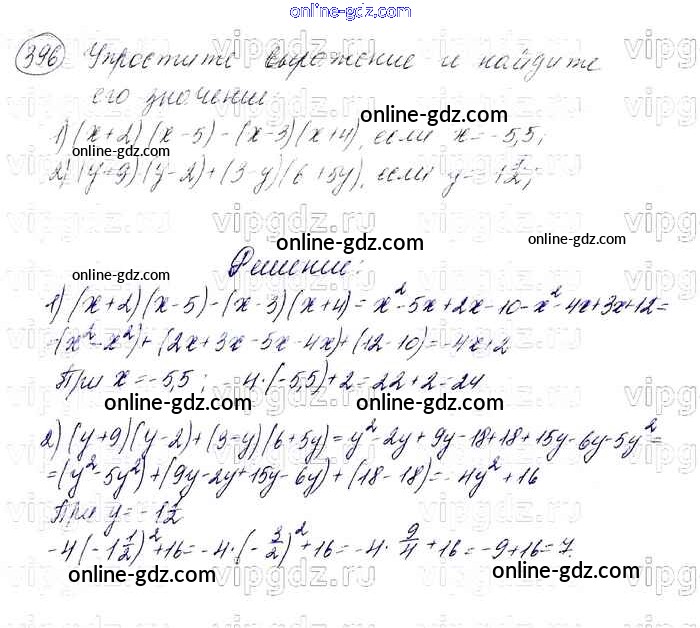 online-gdz.com
396 Упростите выражение и найдите
его значение:
online-gdz.com
1) (x+2)(x-5)-(x-3)(x+4), если x=-5,5;
2) (y+9)(y-2)+(3-y)(6+5y), если y=-1 1/2;
online-gdz.com
online-gdz.com
online-gdz.com
Решение:
1) (x+2)(x-5)-(x-3)(x+4)=x²-5x+2x-10-x²-4x+3x+12=
=(x²-x²)+(2x+3x-5x-4x)+(12-10)=-4x+2
При x=-5,5; -4·(-5,5)+2=22+2=24
online-gdz.com
online-gdz.com
2) (y+9)(y-2)+(3-y)(6+5y)=y²-2y+9y-18+18+15y-6y-5y²=
=(y²-5y²)+(9y-2y+15y-6y)+(18-18)=-4y²+16
При y=-1 1/2
-4(-1 1/2)²+16=-4·(-3/2)²+16=-4·9/4+16=-9+16=7.
online-gdz.com
online-gdz.com